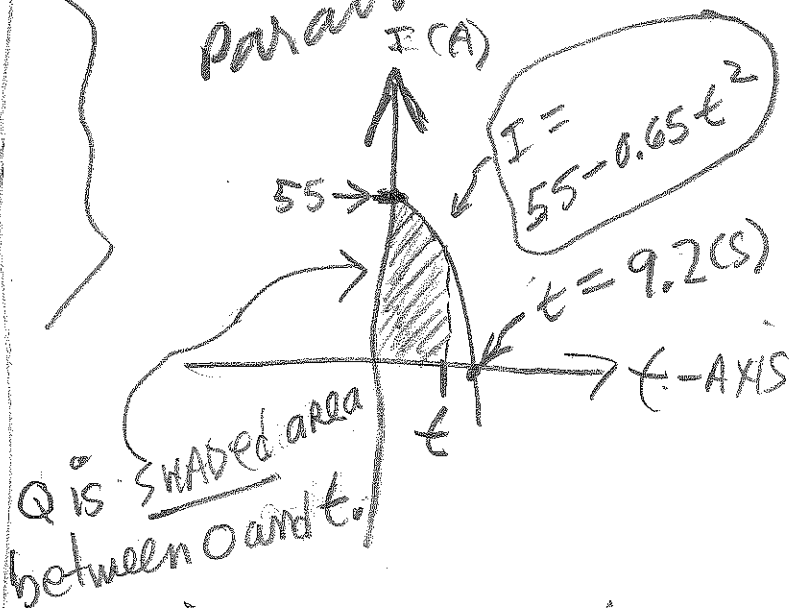 I (A)
I =
55-0.65t²
55
t = 9.2(S)
t-AXIS
t
Q is SHADed area
between 0 and t.